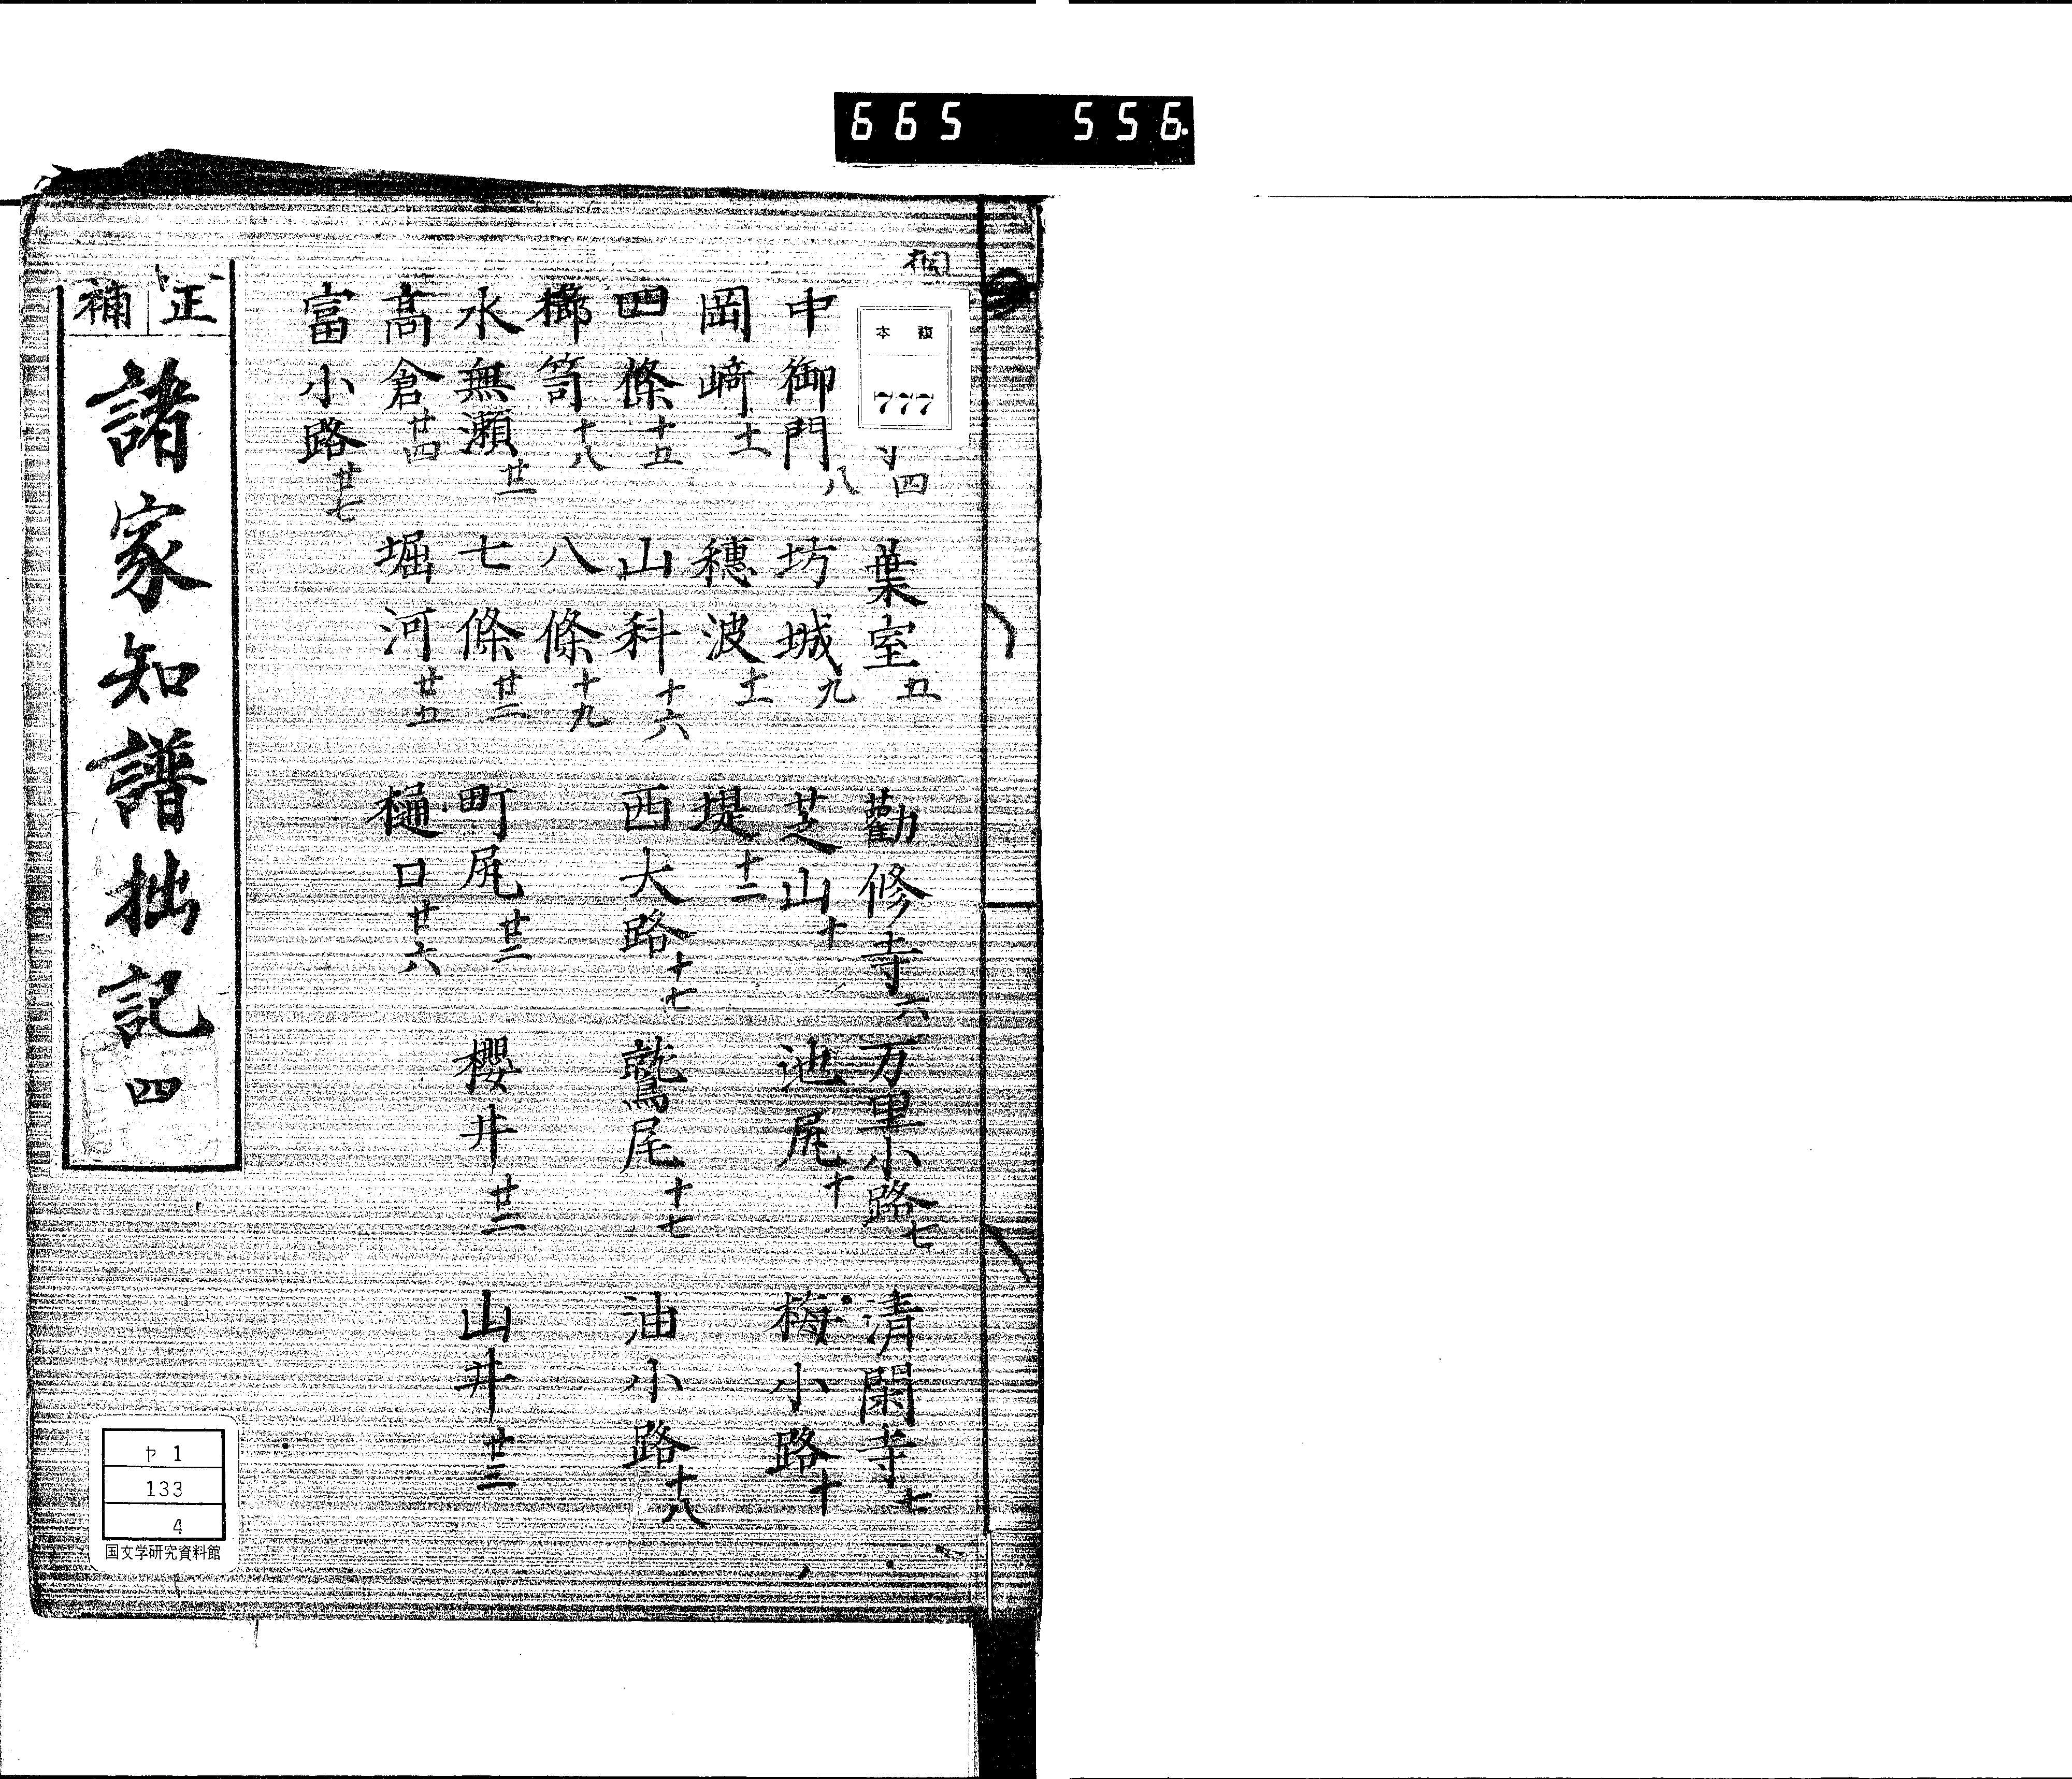 665 556.
複本
777
四 葉室五 勸修寺六 万里小路七 清閑寺七
中御門八 坊城九 芝山十 池尻十 梅小路十
岡﨑十一 穗波十一 堤十二
四條十五 山科十六 西大路十七 鷲尾十七 油小路十八
櫛笥十八 八條十九
水無瀬廿一 七條廿二 町尻廿二 櫻井廿二 山井廿三
高倉廿四 堀河廿五 樋口廿六
富小路廿七
正補 諸家知譜拙記 四
ヤ1
133
4
国文学研究資料館